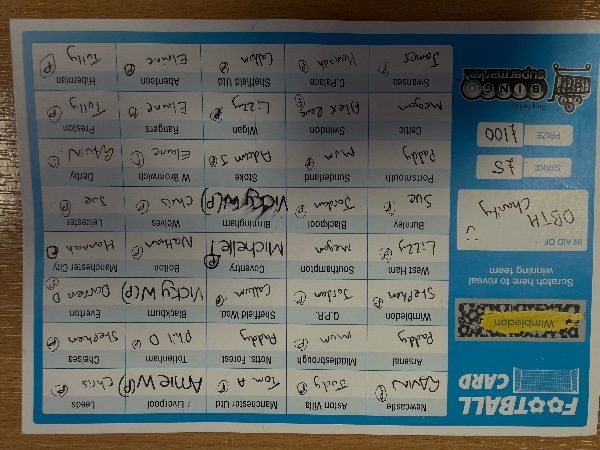 FOOTBALL
CARD
Wimbledon
Scratch here to reveal
winning team
IN AID OF -
OBTH
Charity
STAKE £5
PRIZE £100
Supplied by
BINGO
supermarket
Newcastle GAVIN P
Aston Villa Judy P
Manchester Utd Tom A P
Liverpool Annie W(P)
Leeds Chris P
Arsenal Paddy
Middlesbrough Mum P
Notts Forest Paddy
Tottenham Phil O P
Chelsea Stephen P
Wimbledon Stephen P
Q.P.R. Jordan P
Sheffield Wed. Callum P
Blackburn Vicky W(P)
Everton Darren D P
West Ham Lizzy P
Southampton Megan
Coventry Michelle! P
Bolton Nathan P
Manchester City Hannah P
Burnley Sue P
Blackpool Jordan P
Birmingham Vicky W(P)
Wolves Chris P
Leicester Sue P
Portsmouth Paddy
Sunderland Mum P
Stoke Adam S P
W Bromwich Elaine P
Derby GAVIN P
Celtic Megan
Swindon Alex P
Wigan Lizzy P
Rangers Elaine P
Preston Tully P
Swansea James P
C.Palace Hannah P
Sheffield Utd Callum P
Aberdeen Elaine P
Hibernian Tully P